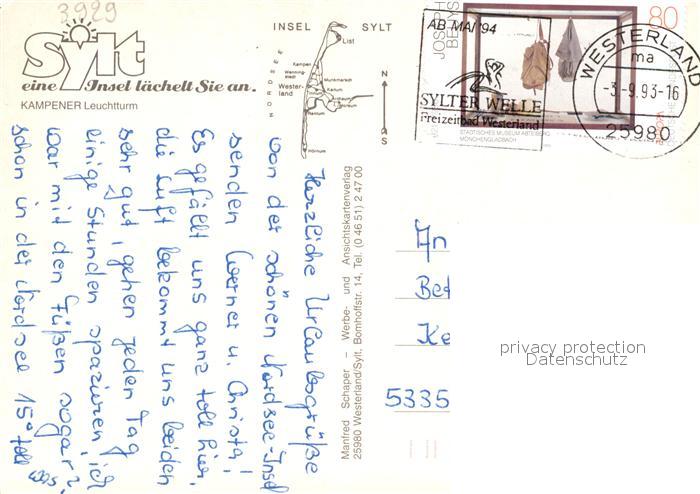 3929
Sylt
eine Insel lächelt Sie an.
KAMPENER Leuchtturm
INSEL SYLT
NORDSEE
List
Kampen
Wenning-
stedt
Munkmarsch
Keitum
Wester-
land
Rantum
Hörnum
N
S
AB MAI '94
SYLTER WELLE
Freizeitbad Westerland
JOSEPH
BEUYS
80
STÄDTISCHES MUSEUM ABTEIBERG
MÖNCHENGLADBACH
WESTERLAND
ma
-3.-9.93-16
25980
Herzliche Urlaubsgrüße
von der schönen Nordsee-Insel
senden Werner u. Christa!
Es gefällt uns ganz toll hier,
die Luft bekommt uns beiden
sehr gut, gehen jeden Tag
einige Stunden spazieren, ich
war mit den Füßen sogar
schon in der Nordsee 15° toll
Manfred Schaper – Werbe- und Ansichtskartenverlag
25980 Westerland/Sylt, Bomhoffstr. 14, Tel. (0 46 51) 2 47 00
An
Bet
Ke
5335
privacy protection
Datenschutz